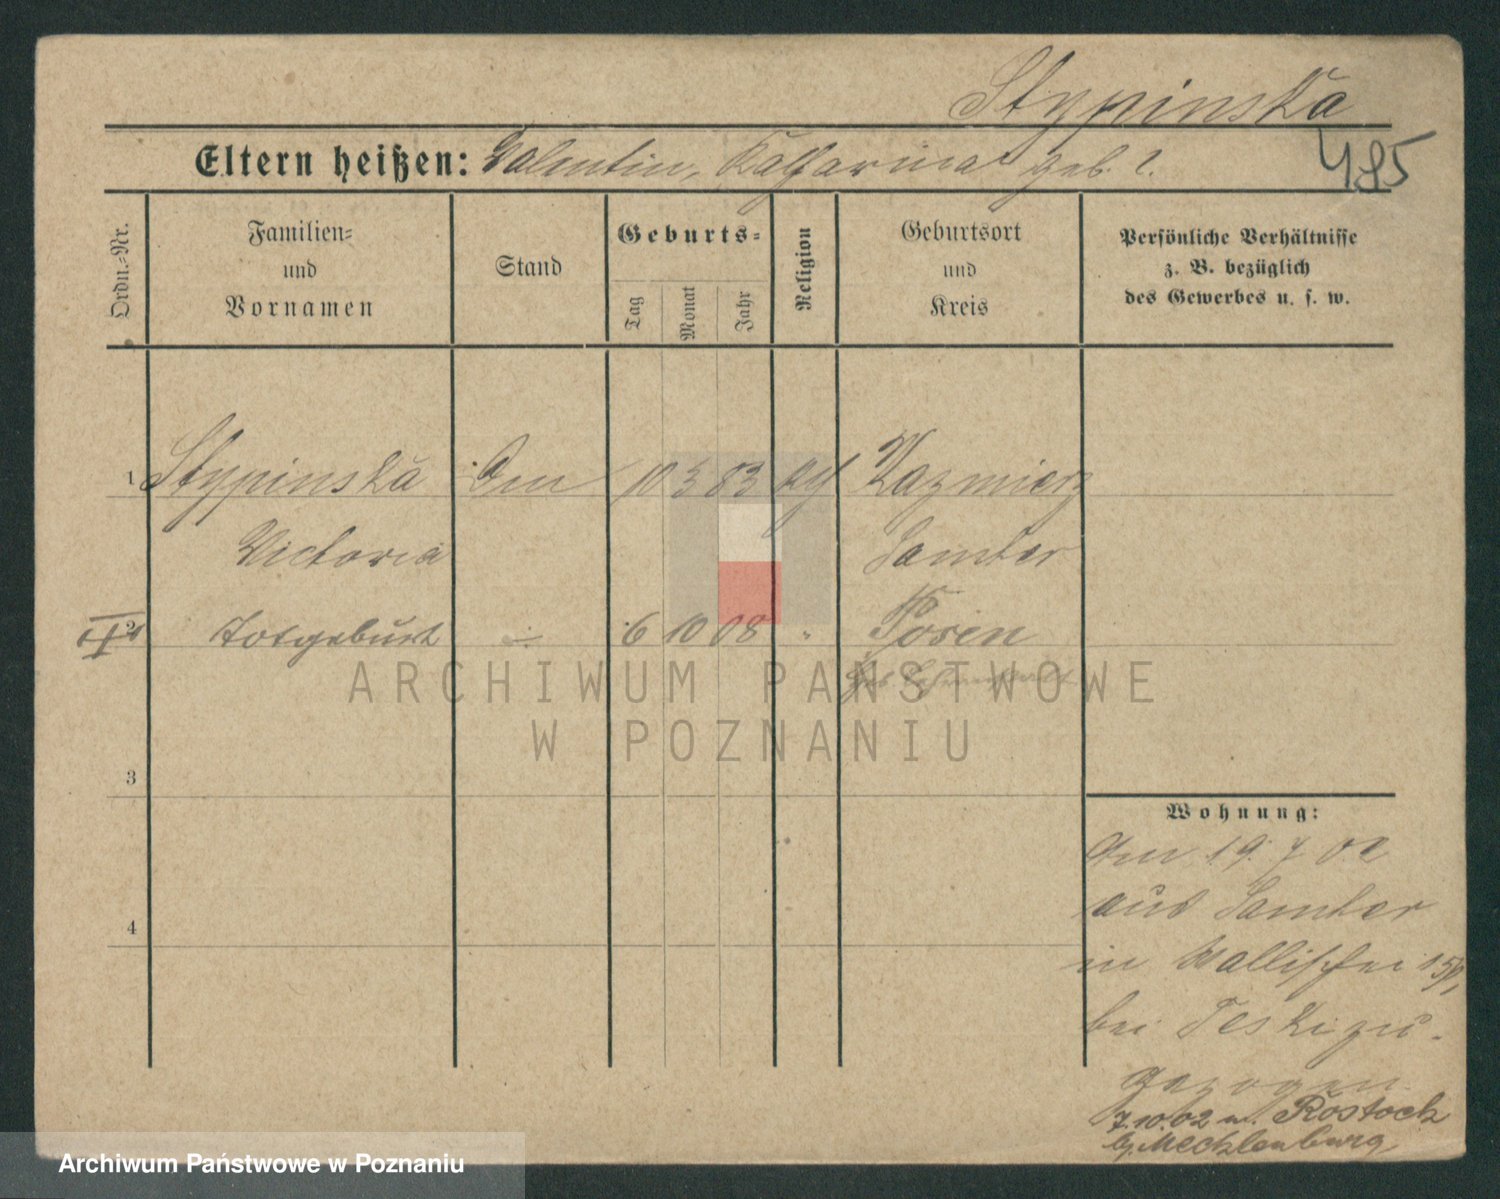 Stypinska
Eltern heißen: Valentin, Katharina geb. ?.
485
Ordn.=Nr.
Familien=
und
Vornamen
Stand
Geburts=
Tag
Monat
Jahr
Religion
Geburtsort
und
Kreis
Persönliche Verhältnisse
z. B. bezüglich
des Gewerbes u. s. w.
1 Stypinska 10 3 83 Kazmierz
Victoria Samter
2 Totgeburt 6 10 08 " Posen
ARCHIWUM PAŃSTWOWE
W POZNANIU
3
4
Wohnung:
Am 19. 7 02
aus Samter
in Wallischei
bei Teski zu-
gezogen
7.10.02 n. Rostock
Mecklenburg
Archiwum Państwowe w Poznaniu